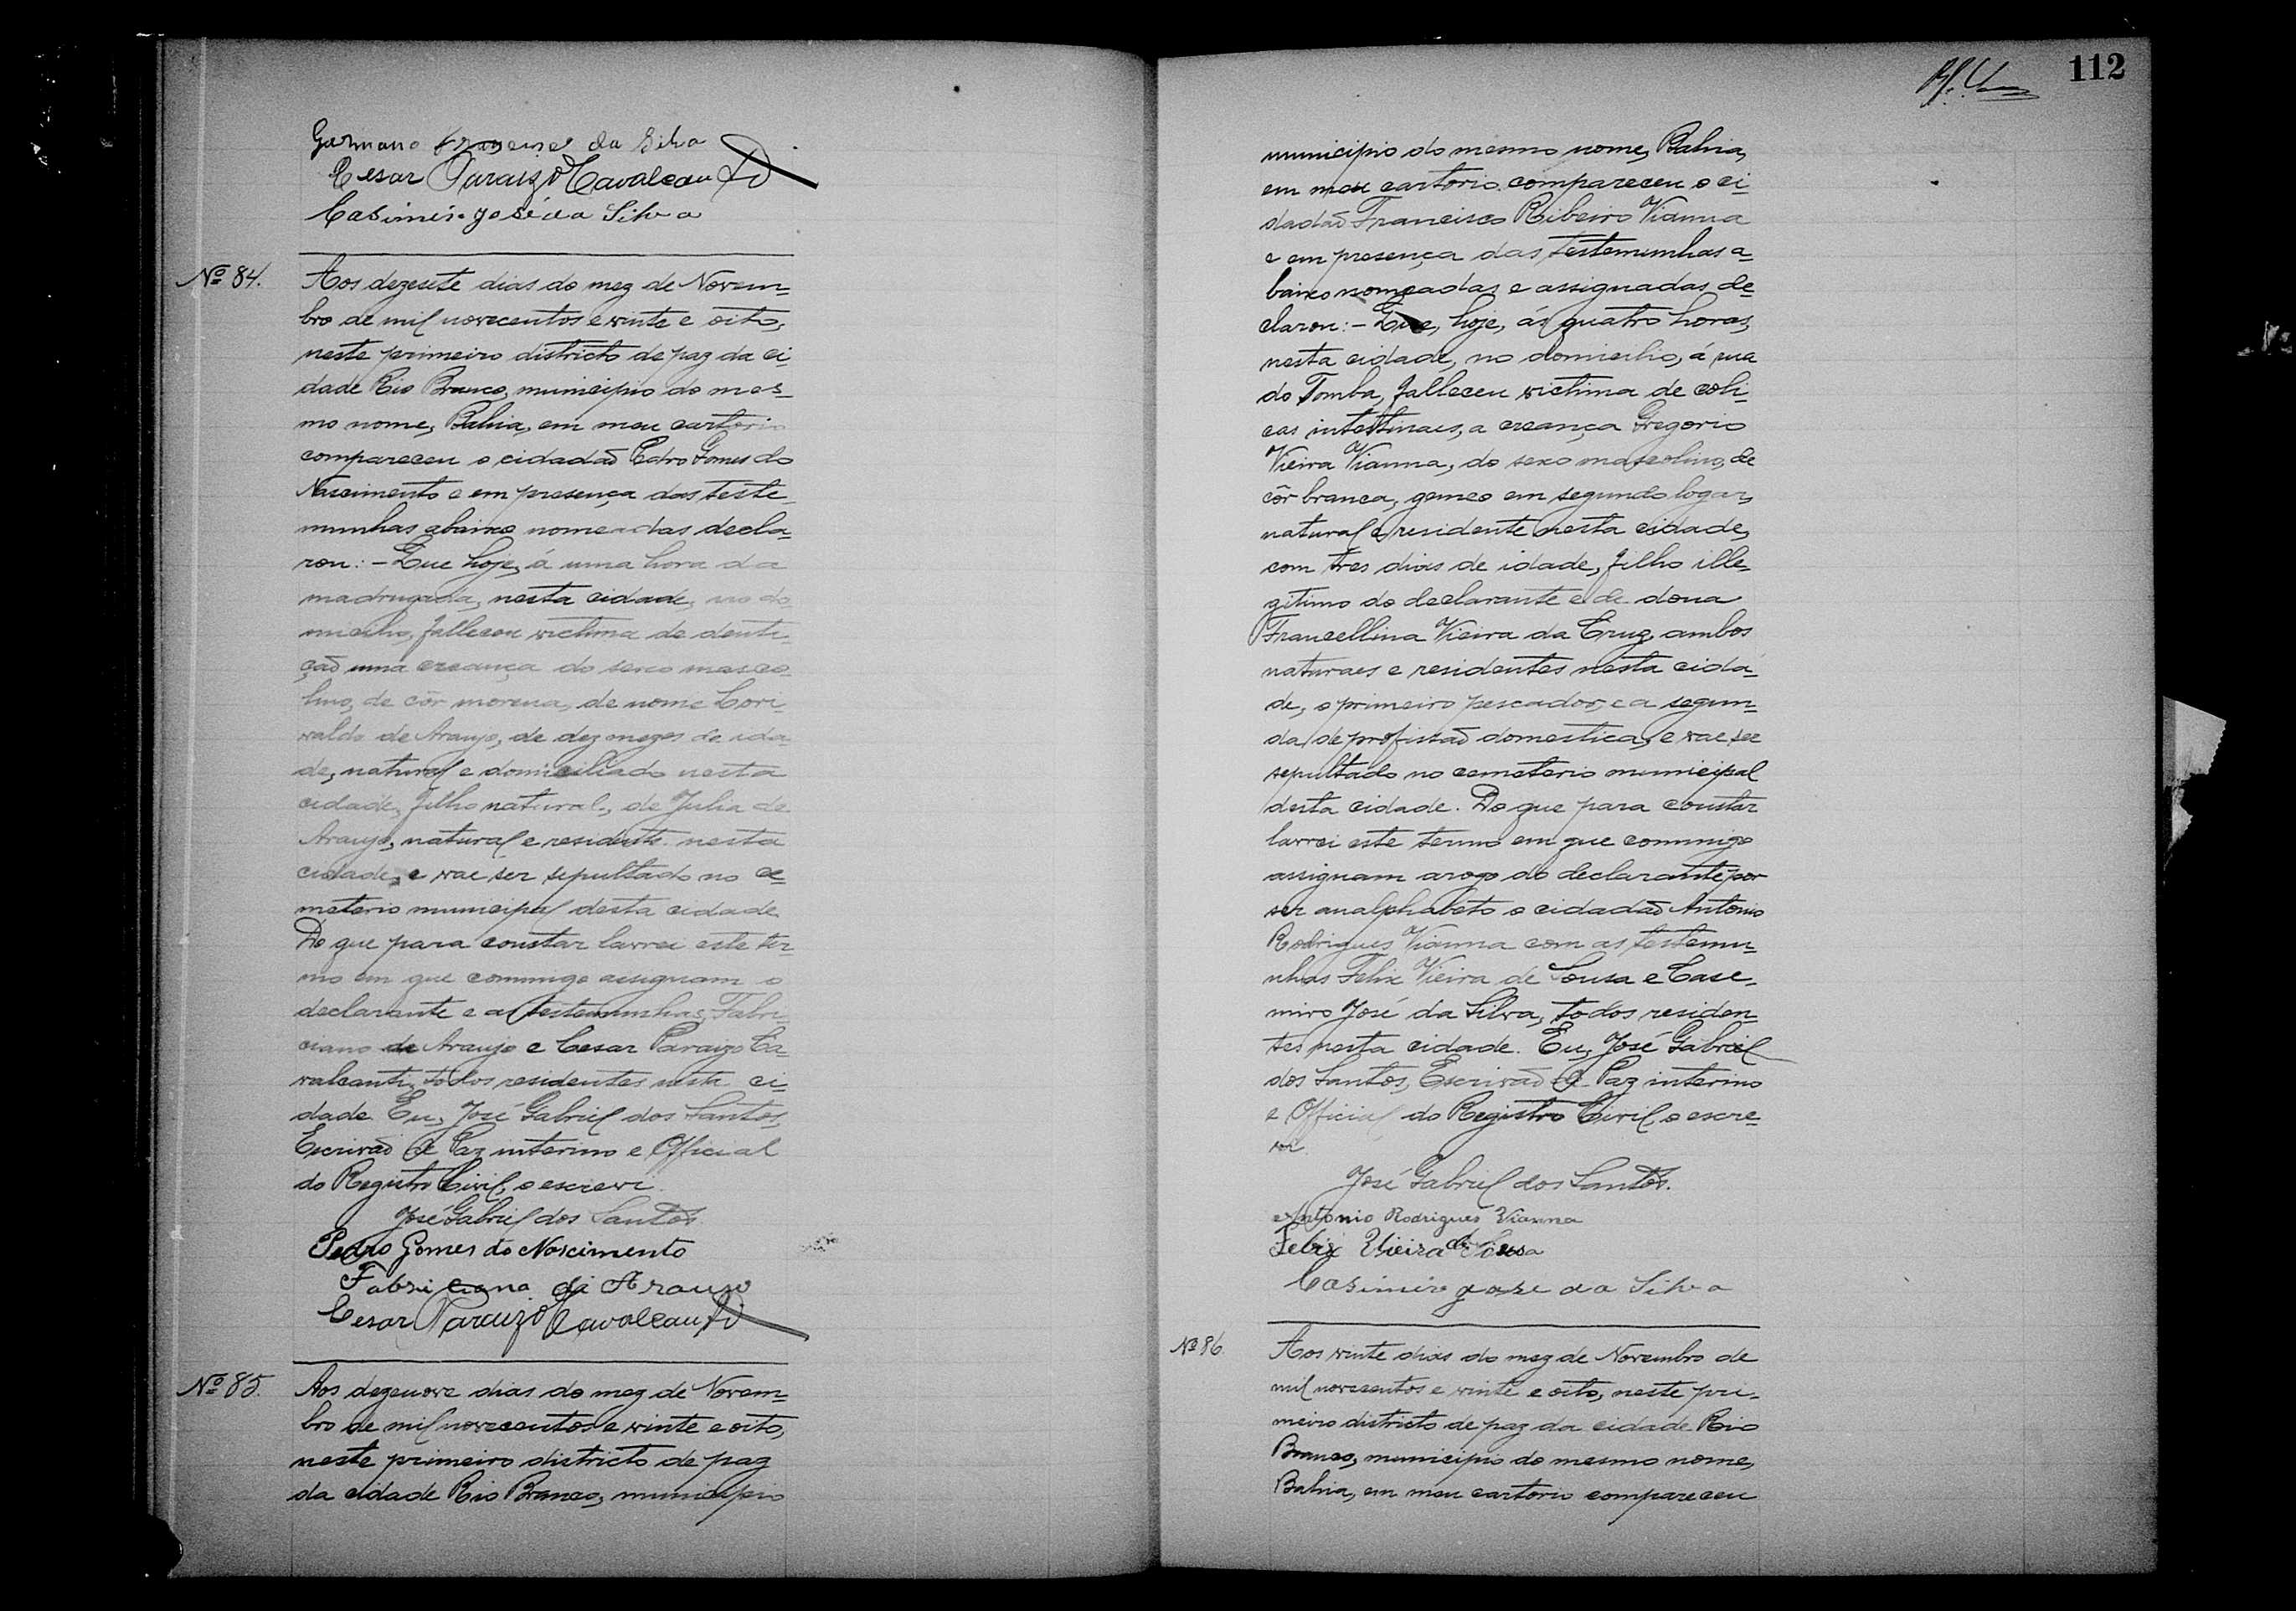 Germano da Silva
Cesar Paraizo Cavalcanti
Casimiro José da Silva
Nº 84.
Aos dezesete dias do mez de Novem=
bro de mil novecentos e vinte e oito,
neste primeiro districto de paz da ci=
dade Rio Branco, municipio do mes=
mo nome, Bahia, em meu cartorio
compareceu o cidadaõ Pedro Gomes do
Nascimento e em presença das teste=
munhas abaixo nomeadas decla=
rou: - Que hoje, á uma hora da
madrugada, nesta cidade, no do=
micilio, falleceu victima de denti=
çaõ uma creança do sexo masco=
lino, de côr morena, de nome Lori=
valdo de Araujo, de dez mezes de ida=
de, natural e domiciliado nesta
cidade, filho natural, de Julia de
Araujo, natural e residente nesta
cidade, e vae ser sepultado no ce=
meterio municipal desta cidade.
Do que para constar lavrei este ter=
mo em que commigo assignam o
declarante e as testemunhas, Fabri=
ciano de Araujo e Cesar Paraizo Ca=
valcanti, todos residentes nesta ci=
dade. Eu, José Gabriel dos Santos,
Escrivaõ de Paz interino e Official
do Registro Civil, o escrevi.
José Gabriel dos Santos
Pedro Gomes do Nascimento
Fabriciano di Araujo
Cesar Paraizo Cavalcanti
Nº 85.
Aos dezenove dias do mez de Novem=
bro de mil novecentos e vinte e oito,
neste primeiro districto de paz
da cidade Rio Branco, municipio
112
municipio do mesmo nome, Bahia,
em meu cartorio compareceu o ci=
dadaõ Francisco Ribeiro Vianna
e em presença das testemunhas a=
baixo nomeadas e assignadas de=
clarou: - Que, hoje, ás quatro horas,
nesta cidade, no domicilio, á rua
do Tomba, falleceu victima de coli=
cas intestinaes, a creança Gregorio
Vieira Vianna, do sexo mascolino, de
côr branca, gemeo em segundo logar,
natural e residente nesta cidade,
com tres dias de idade, filho ille=
gitimo do declarante e de dona
Francellina Vieira da Cruz, ambos
naturaes e residentes nesta cida=
de, o primeiro pescador, e a segun=
da de profissaõ domestica, e vae ser
sepultado no cemeterio municipal
desta cidade. Do que para constar
lavrei este termo em que commigo
assignam arogo do declarante por
ser analphabeto o cidadaõ Antonio
Rodrigues Vianna com as testemu=
nhas Felix Vieira de Sousa e Case=
miro José da Silva, todos residen=
tes nesta cidade. Eu, José Gabriel
dos Santos, Escrivaõ de Paz interino
e Official do Registro Civil, o escre=
vi.
José Gabriel dos Santos.
Antonio Rodrigues Vianna
Felix Vieira de Sousa
Casimiro jose da Silva
Nº 86.
Aos vinte dias do mez de Novembro de
mil novecentos e vinte e oito, neste pri=
meiro districto de paz da cidade Rio
Branco, municipio do mesmo nome,
Bahia, em meu cartorio compareceu